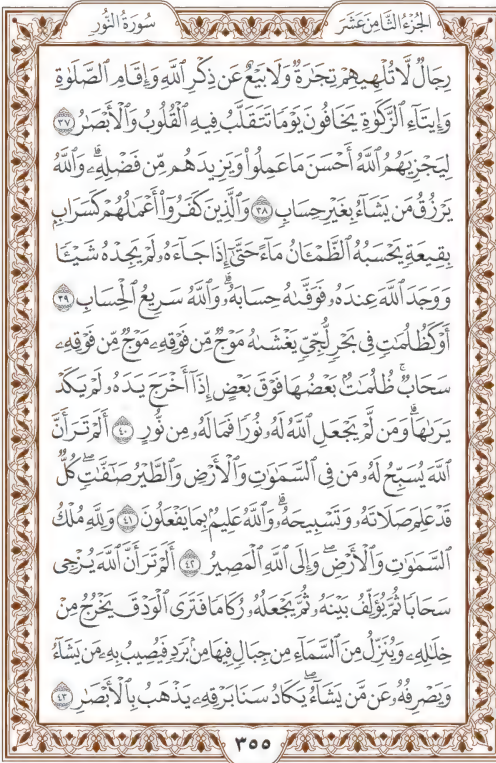 الجُزْءُ الثَّامِنَ عَشَرَ
سُورَةُ النُّورِ
رِجَالٌ لَّا تُلْهِيهِمْ تِجَٰرَةٌ وَلَا بَيْعٌ عَن ذِكْرِ ٱللَّهِ وَإِقَامِ ٱلصَّلَوٰةِ
وَإِيتَآءِ ٱلزَّكَوٰةِ يَخَافُونَ يَوْمًا تَتَقَلَّبُ فِيهِ ٱلْقُلُوبُ وَٱلْأَبْصَٰرُ ٣٧
لِيَجْزِيَهُمُ ٱللَّهُ أَحْسَنَ مَا عَمِلُوا۟ وَيَزِيدَهُم مِّن فَضْلِهِۦۗ وَٱللَّهُ
يَرْزُقُ مَن يَشَآءُ بِغَيْرِ حِسَابٍ ٣٨ وَٱلَّذِينَ كَفَرُوٓا۟ أَعْمَٰلُهُمْ كَسَرَابٍۭ
بِقِيعَةٍ يَحْسَبُهُ ٱلظَّمْـَٔانُ مَآءً حَتَّىٰٓ إِذَا جَآءَهُۥ لَمْ يَجِدْهُ شَيْـًٔا
وَوَجَدَ ٱللَّهَ عِندَهُۥ فَوَفَّىٰهُ حِسَابَهُۥۗ وَٱللَّهُ سَرِيعُ ٱلْحِسَابِ ٣٩
أَوْ كَظُلُمَٰتٍ فِى بَحْرٍ لُّجِّىٍّ يَغْشَىٰهُ مَوْجٌ مِّن فَوْقِهِۦ مَوْجٌ مِّن فَوْقِهِۦ
سَحَابٌۚ ظُلُمَٰتٌۢ بَعْضُهَا فَوْقَ بَعْضٍ إِذَآ أَخْرَجَ يَدَهُۥ لَمْ يَكَدْ
يَرَىٰهَاۗ وَمَن لَّمْ يَجْعَلِ ٱللَّهُ لَهُۥ نُورًا فَمَا لَهُۥ مِن نُّورٍ ٤٠ أَلَمْ تَرَ أَنَّ
ٱللَّهَ يُسَبِّحُ لَهُۥ مَن فِى ٱلسَّمَٰوَٰتِ وَٱلْأَرْضِ وَٱلطَّيْرُ صَٰٓفَّٰتٍۖ كُلٌّ
قَدْ عَلِمَ صَلَاتَهُۥ وَتَسْبِيحَهُۥۗ وَٱللَّهُ عَلِيمٌۢ بِمَا يَفْعَلُونَ ٤١ وَلِلَّهِ مُلْكُ
ٱلسَّمَٰوَٰتِ وَٱلْأَرْضِۖ وَإِلَى ٱللَّهِ ٱلْمَصِيرُ ٤٢ أَلَمْ تَرَ أَنَّ ٱللَّهَ يُزْجِى
سَحَابًا ثُمَّ يُؤَلِّفُ بَيْنَهُۥ ثُمَّ يَجْعَلُهُۥ رُكَامًا فَتَرَى ٱلْوَدْقَ يَخْرُجُ مِنْ
خِلَٰلِهِۦ وَيُنَزِّلُ مِنَ ٱلسَّمَآءِ مِن جِبَالٍ فِيهَا مِنۢ بَرَدٍ فَيُصِيبُ بِهِۦ مَن يَشَآءُ
وَيَصْرِفُهُۥ عَن مَّن يَشَآءُۖ يَكَادُ سَنَا بَرْقِهِۦ يَذْهَبُ بِٱلْأَبْصَٰرِ ٤٣
٣٥٥